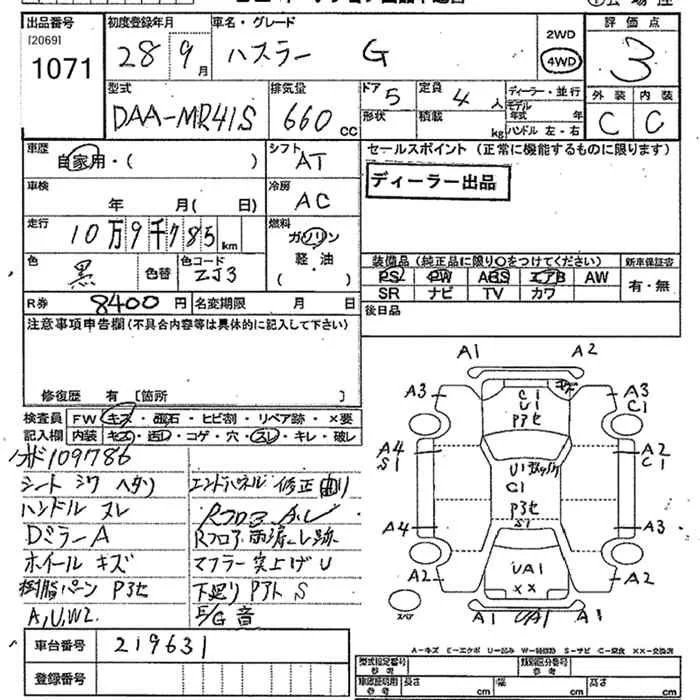 出品番号 初度登録年月 車名・グレード 2WD 評価点
[2069]
1071 28 9月 ハスラー G 4WD 3
型式 排気量 ドア 定員 ディーラー・並行 外装 内装
DAA-MR41S 660 CC 5 4人 モデル年式 年 C C
形状 積載 kg ハンドル 左・右
車歴 シフト セールスポイント (正常に機能するものに限ります)
自家用・( ) AT ディーラー出品
車検 冷房
年 月( 日) AC
走行 燃料
10万9千785km ガソリン
軽・油
( )
色 色コード 装備品 (純正品に限り○をつけてください) 新車保証書
黒 色替 ZJ3 PS PW ABS エアB AW 有・無
SR ナビ TV カワ
R券 8400円 名変期限 月 日 後日品
注意事項申告欄(不具合内容等は具体的に記入して下さい)
修復歴 有 [箇所 ]
検査員 FW キズ・飛石・ヒビ割・リペア跡・×要
記入欄 内装 キズ・汚レ・コゲ・穴・スレ・キレ・破レ
109786
シート シワ ヘタリ エンドパネル 修正 曲り
ハンドル スレ Rフロア
DミラーA Rフロア
ホイール キズ マフラー 突上げ U
樹脂パーツ P3セ 下廻り S
A,U,W2 E/G 音
車台番号 219631
登録番号
A1 A2
A3 C1 U1 P3セ A3 C1
A4 S1 U1 C1 P3セ S1 A2 C1
A4 A3
A2 UA1 ×× A2
スペア A1 UA1 A1
A-キズ E-エクボ U-凹み W-補修跡 S-サビ C-腐食 XX-交換済
型式指定番号 参考 類別区分番号 参考
車庫証明用 参考 長さ cm 幅 cm 高さ cm